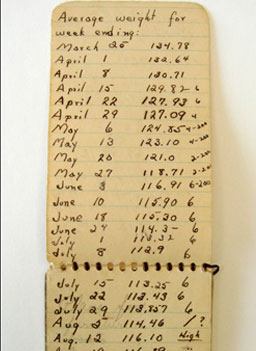 Average weight for
week ending:
March 25 134.78
April 1 132.64
April 8 130.71
April 15 129.82 6
April 22 127.93 6
April 29 127.09 4
May 6 124.85 4-200
May 13 123.10 4-200
May 20 121.0 2-200
May 27 118.71 2-200
June 3 116.91 6-200
June 10 115.90 6
June 18 115.30 6
June 24 114.3- 6
July 1 113.32 6
July 8 112.9 6
July 15 113.25 6
July 22 113.43 6
July 29 113.857 6
Aug 5 114.46 1?
Aug. 12 116.10 High